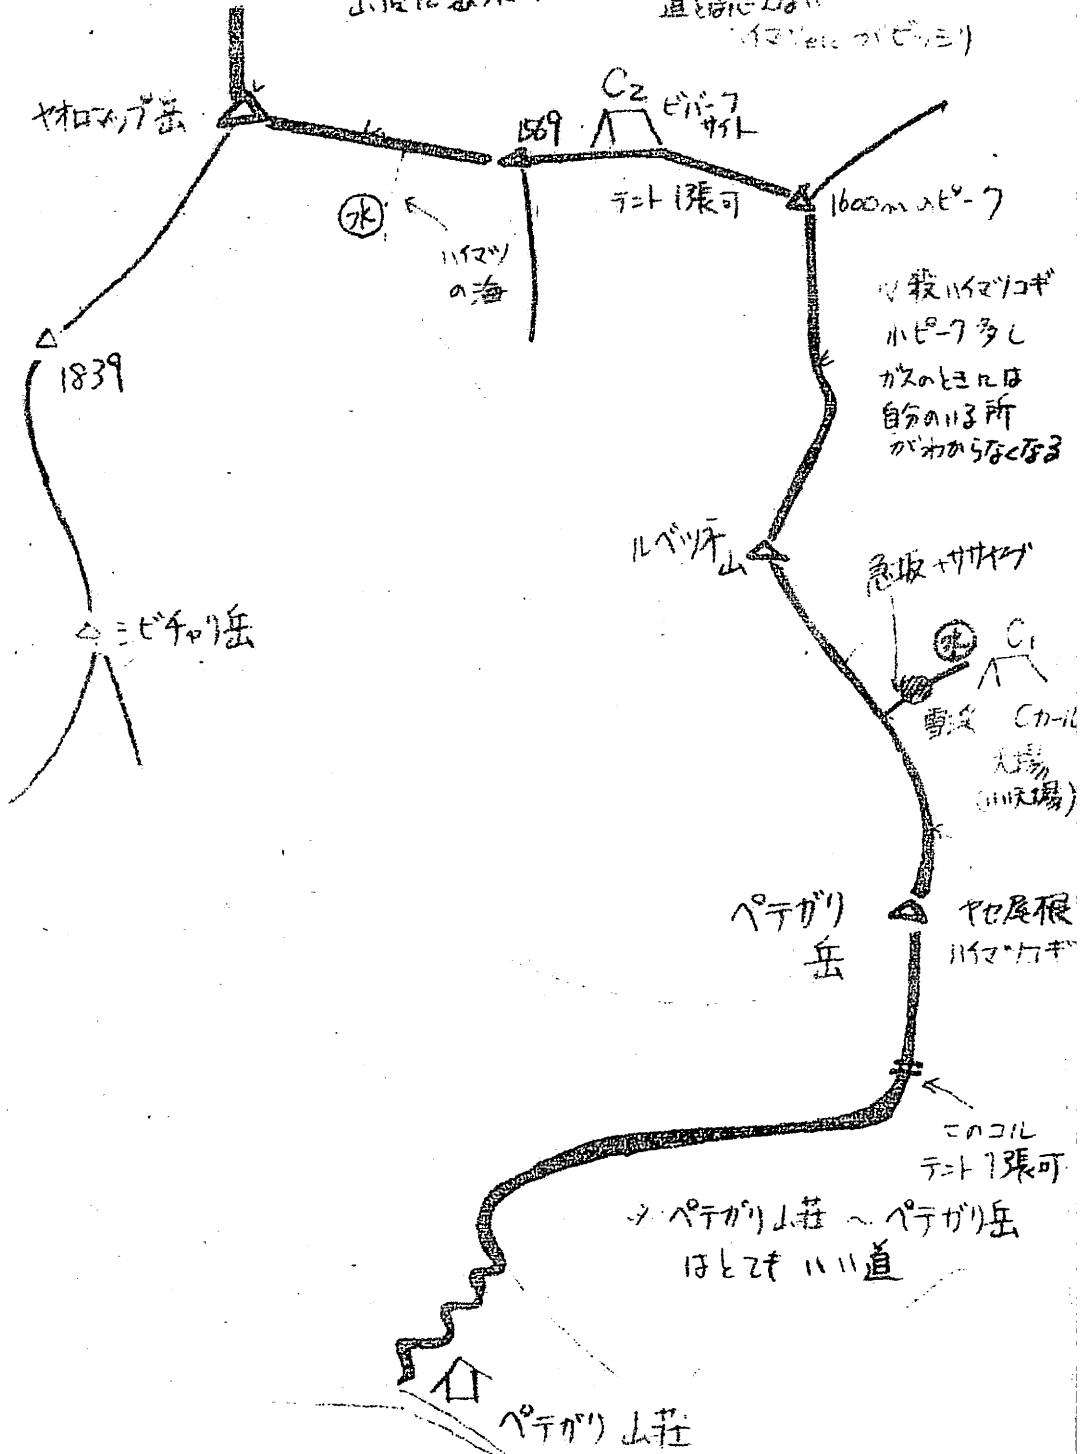 道とは
ハイマツetc がビッシリ
ヤオロマップ岳
C2
ビバーク
サイト
1569
テント1張可
1600mのピーク
水
ハイマツ
の海
殺ハイマツコギ
小ピーク多し
ガスのときには
自分のいる所
がわからなくなる
1839
ルベツネ
山
急坂+ササヤブ
水
C1
雪渓
Cカール
天場
ミビチャリ岳
ペテガリ
岳
ヤセ尾根
ハイマツコギ
このコル
テント1張可
ペテガリ山荘 〜 ペテガリ岳
はとても いい道
ペテガリ山荘